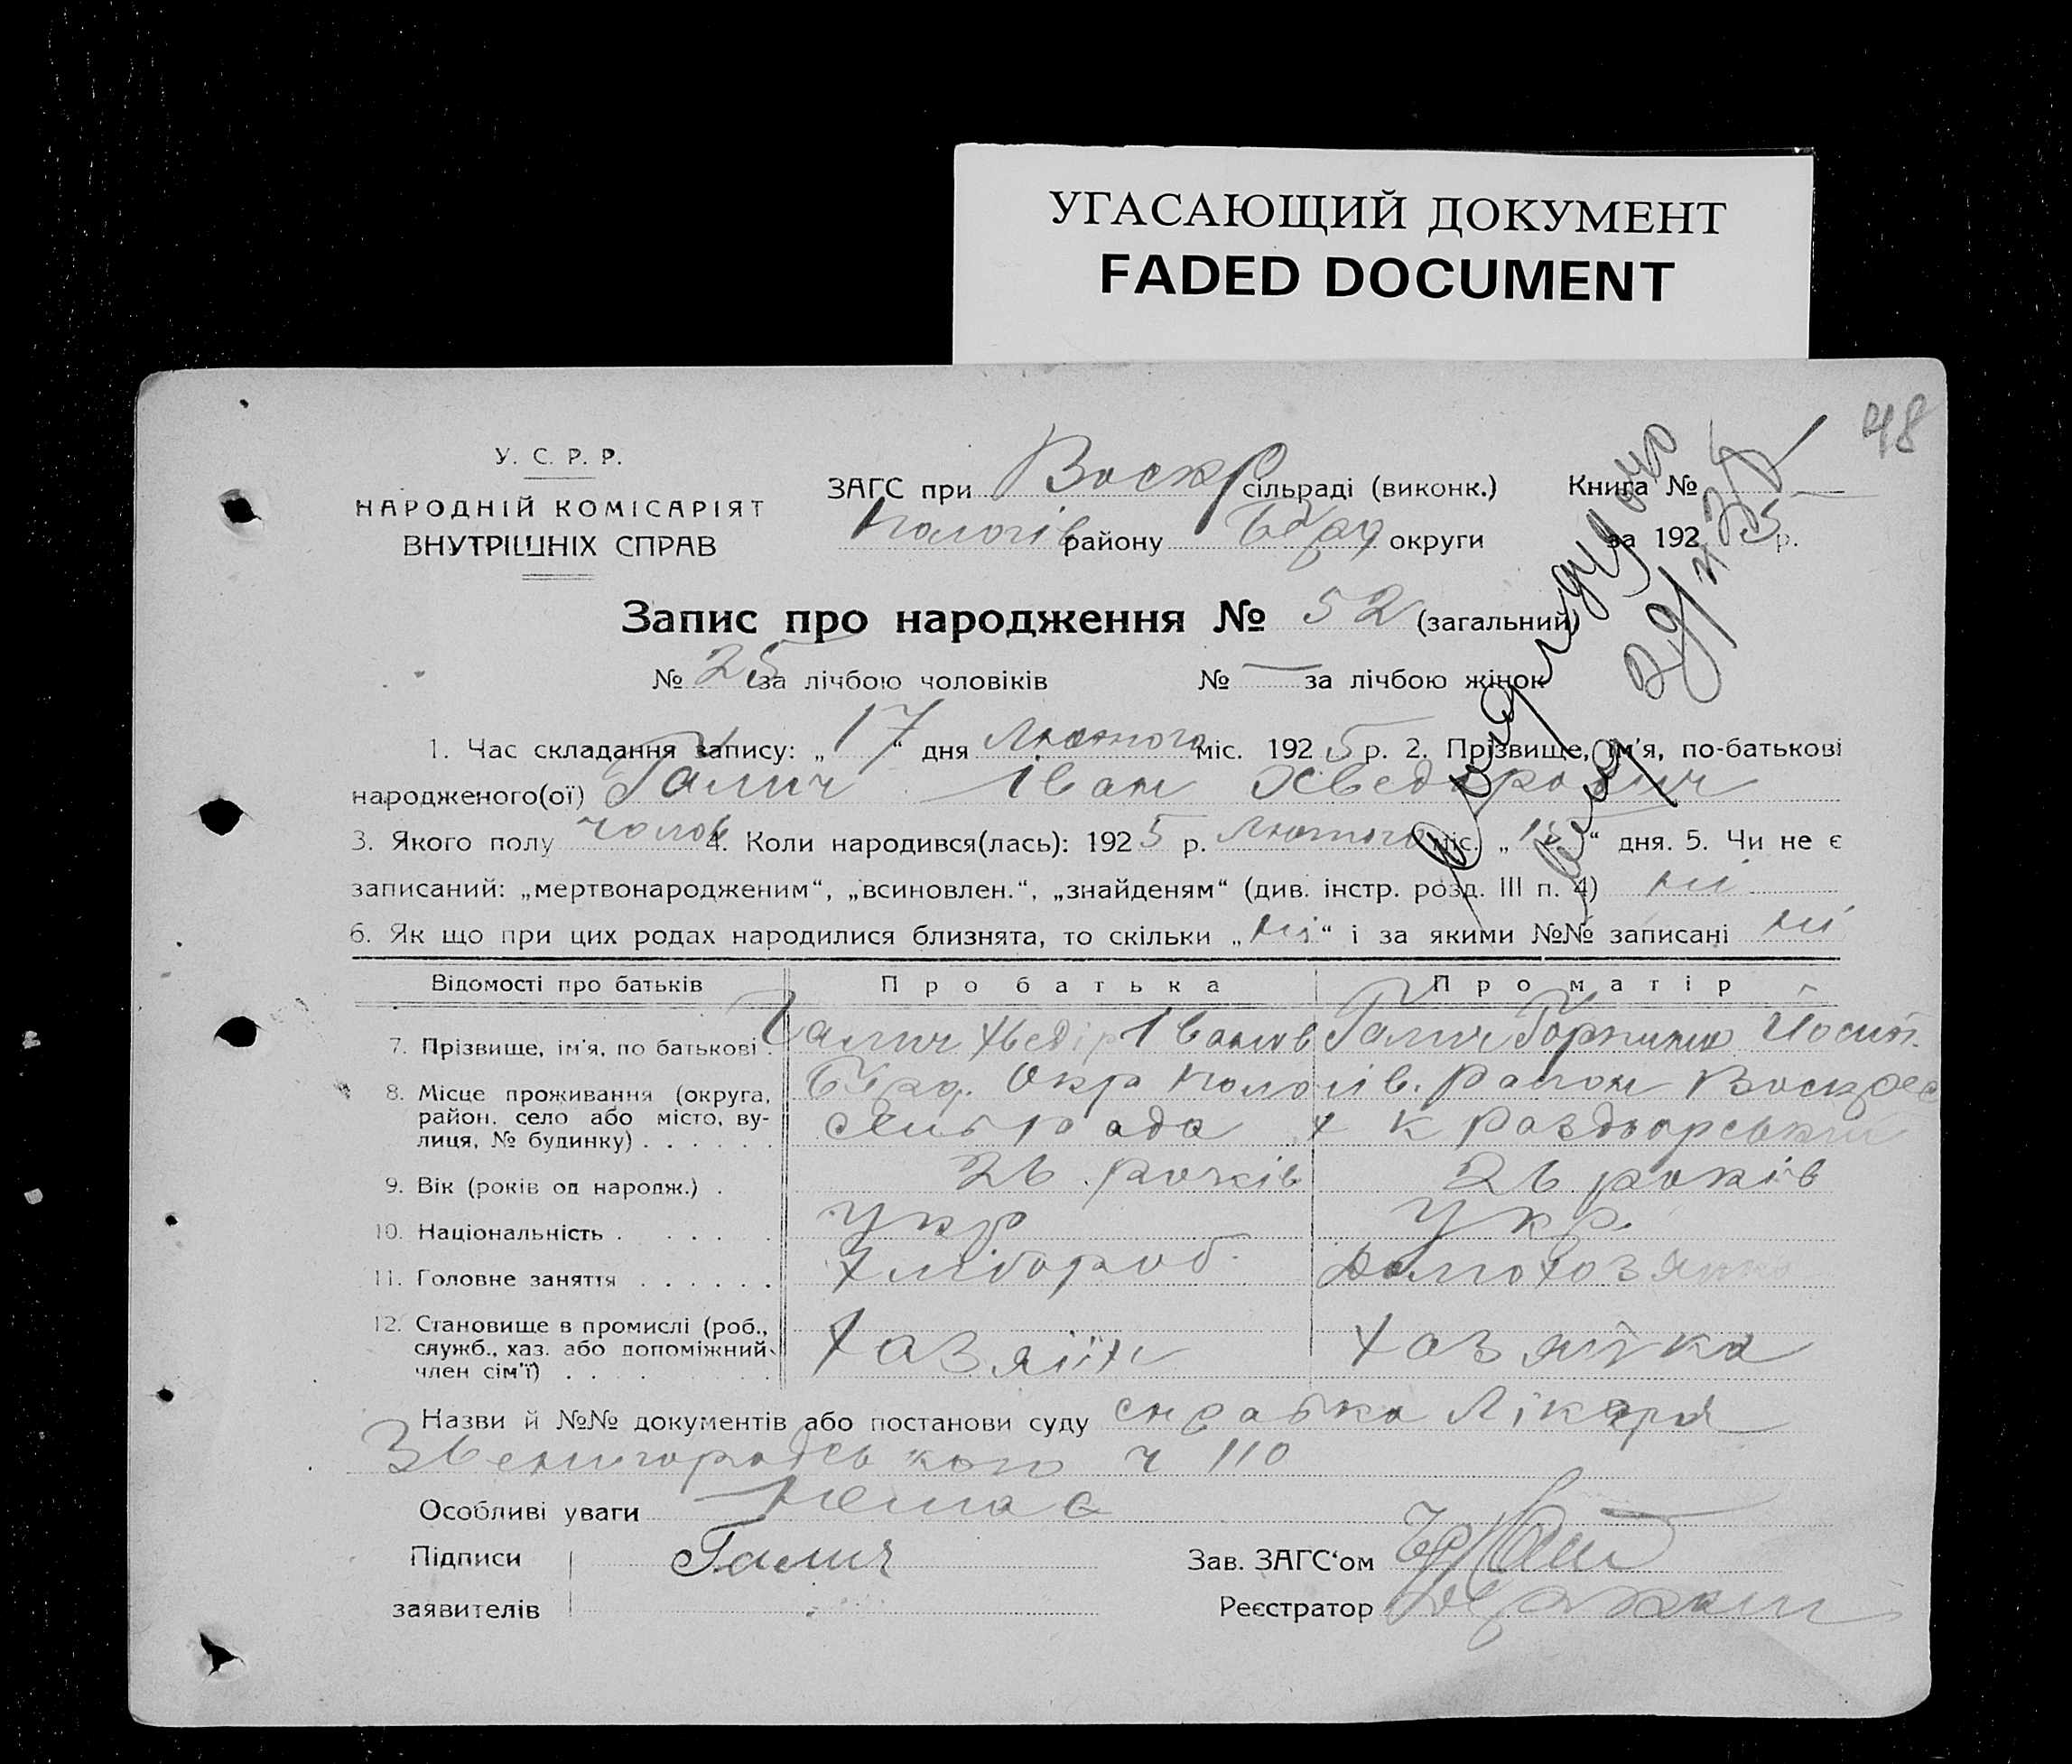 УГАСАЮЩИЙ ДОКУМЕНТ
FADED DOCUMENT
48
У. С. Р. Р.
НАРОДНІЙ КОМІСАРІЯТ
ВНУТРІШНІХ СПРАВ
ЗАГС при Воскр сільраді (виконк.) Книга № —
Пологів району округи за 1925 р.
Запис про народження № 52 (загальний)
№ 25 за лічбою чоловіків № — за лічбою жінок
1. Час складання запису: „17“ дня Лютого міс. 1925 р. 2. Прізвище, ім'я, по-батькові
народженого(ої) Галич Іван Хведорович
3. Якого полу чолов 4. Коли народився(лась): 1925 р. Лютого міс. „15“ дня. 5. Чи не є
записаний: „мертвонародженим“, „всиновлен.“, „знайденям“ (див. інстр. розд. III п. 4) ні
6. Як що при цих родах народилися близнята, то скільки „ні“ і за якими №№ записані ні
Відомості про батьків Про батька Про матір
7. Прізвище, ім'я, по батькові . Галич Хведір Іванов Галич Йосип.
8. Місце проживання (округа, Окр Пологів. район Воскрес
район, село або місто, ву-
лиця, № будинку) . . . . . . х к
9. Вік (років од народж.) . 26 років 26 років
10. Національність . . . . . укр укр.
11. Головне заняття . . . . . . Хлібороб. Домохозяйка
12. Становище в промислі (роб.,
служб., хаз. або допоміжний Хазяїн Хазяйка
член сім'ї) . . . .
Назви й №№ документів або постанови суду справка Лікаря
Звенигородського ч 110
Особливі уваги Немає
Підписи Галич Зав. ЗАГС'ом
заявителів Реєстратор